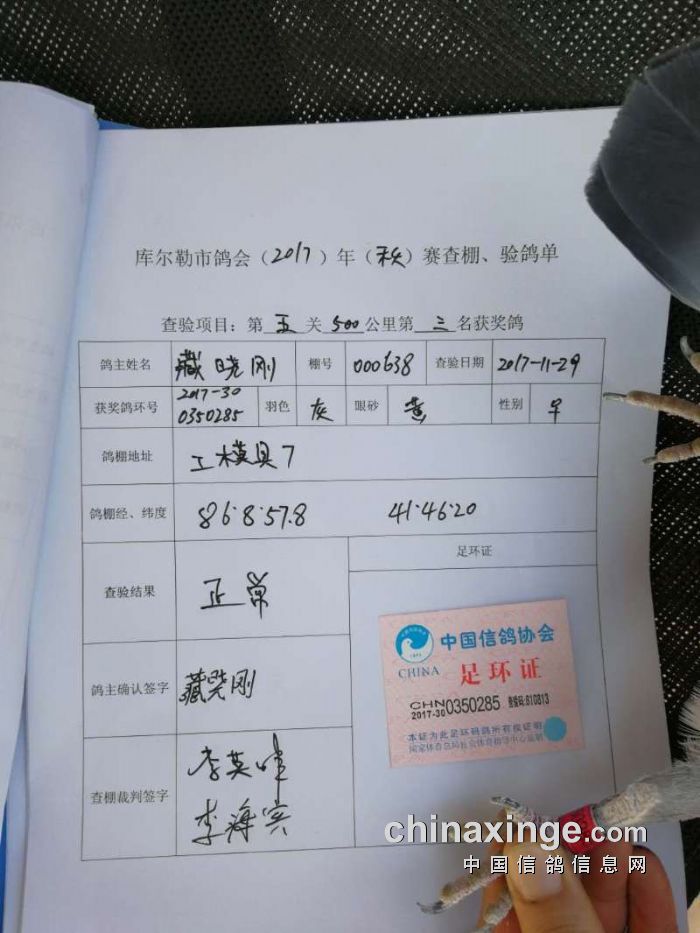 库尔勒市鸽会（2017）年（秋）赛查棚、验鸽单
查验项目：第五关500公里第三名获奖鸽
鸽主姓名 藏晓刚 棚号 000638 查验日期 2017-11-29
获奖鸽环号 2017-30 0350285 羽色 灰 眼砂 黄 性别 早
鸽棚地址 工模具7
鸽棚经、纬度 86·8·57.8 41·46·20
查验结果 正常
足环证
中国信鸽协会
CHINA 足环证
CHN 2017-30 0350285 查验码:810813
本证为此足环码鸽所有权证明
鸽主确认签字 藏晓刚
查棚裁判签字 李英
李海宾
chinaxinge.com
中国信鸽信息网